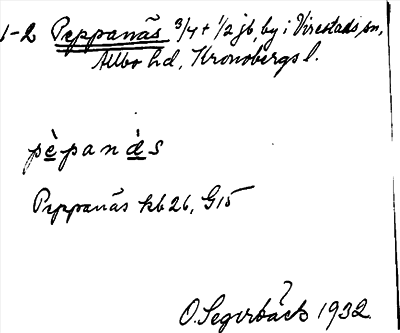 1-2 Peppanäs 3/4 + 1/2 jb, by i Virestads sn,
Allbo hd, Kronobergs l.
pèpanås
Peppanäs kb 26, G15
O. Segerbäck 1932.